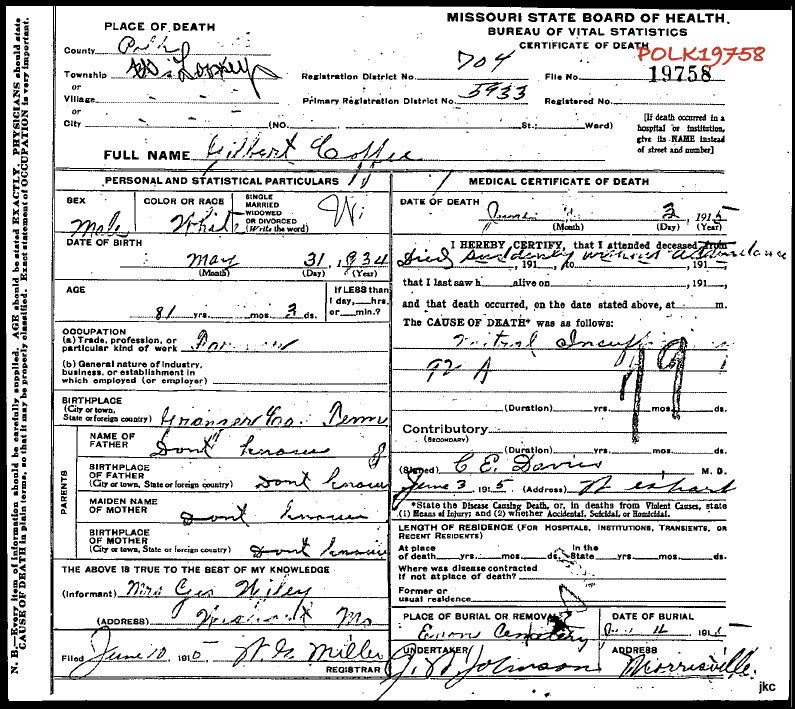 MISSOURI STATE BOARD OF HEALTH.
BUREAU OF VITAL STATISTICS
CERTIFICATE OF DEATH
POLK19758
PLACE OF DEATH
County Polk
Township Lookey
or
Village
or
City (NO. St.; Ward)
Registration District No. 704 File No. 19758
Primary Registration District No. 5933 Registered No.
[If death occurred in a
hospital or institution,
give its NAME instead
of street and number]
FULL NAME Gilbert Coffee
PERSONAL AND STATISTICAL PARTICULARS
SEX Male
COLOR OR RACE White
SINGLE
MARRIED
WIDOWED
OR DIVORCED
(Write the word) Wi
DATE OF BIRTH
May 31, 1834
(Month) (Day) (Year)
AGE
81 yrs. mos. 3 ds.
If LESS than
1 day, hrs.
or min.?
OCCUPATION
(a) Trade, profession, or
particular kind of work Farmer
(b) General nature of industry,
business, or establishment in
which employed (or employer)
BIRTHPLACE
(City or town,
State or foreign country) Grainger Co. Tenn
PARENTS
NAME OF
FATHER Dont know
BIRTHPLACE
OF FATHER
(City or town, State or foreign country) Dont know
MAIDEN NAME
OF MOTHER Dont know
BIRTHPLACE
OF MOTHER
(City or town, State or foreign country) Dont know
THE ABOVE IS TRUE TO THE BEST OF MY KNOWLEDGE
(Informant) Mrs Geo Wiley
(ADDRESS) Wishart Mo
Filed June 10, 1915 W. G. Miller
REGISTRAR
MEDICAL CERTIFICATE OF DEATH
DATE OF DEATH
June 3, 1915
(Month) (Day) (Year)
I HEREBY CERTIFY, that I attended deceased from
Died suddenly without attendance
, 191 , to , 191
that I last saw h alive on , 191 ,
and that death occurred, on the date stated above, at m.
The CAUSE OF DEATH* was as follows:
Mitral
92 A
79
(Duration) yrs. mos. ds.
Contributory
(SECONDARY)
(Duration) yrs. mos. ds.
(Signed) C. E. Davis M. D.
June 3 1915 (Address) Wishart
*State the Disease Causing Death, or, in deaths from Violent Causes, state
(1) Means of Injury; and (2) whether Accidental, Suicidal, or Homicidal.
LENGTH OF RESIDENCE (FOR HOSPITALS, INSTITUTIONS, TRANSIENTS, OR
RECENT RESIDENTS)
At place
of death yrs. mos. ds.
In the
State yrs. mos. ds.
Where was disease contracted
if not at place of death?
Former or
usual residence
PLACE OF BURIAL OR REMOVAL
Enon Cemetery
DATE OF BURIAL
191
UNDERTAKER
J. W. Johnson
ADDRESS
Morrisville.
N. B.—Every item of information should be carefully supplied. AGE should be stated EXACTLY. PHYSICIANS should state
CAUSE OF DEATH in plain terms, so that it may be properly classified. Exact statement of OCCUPATION is very important.
jkc